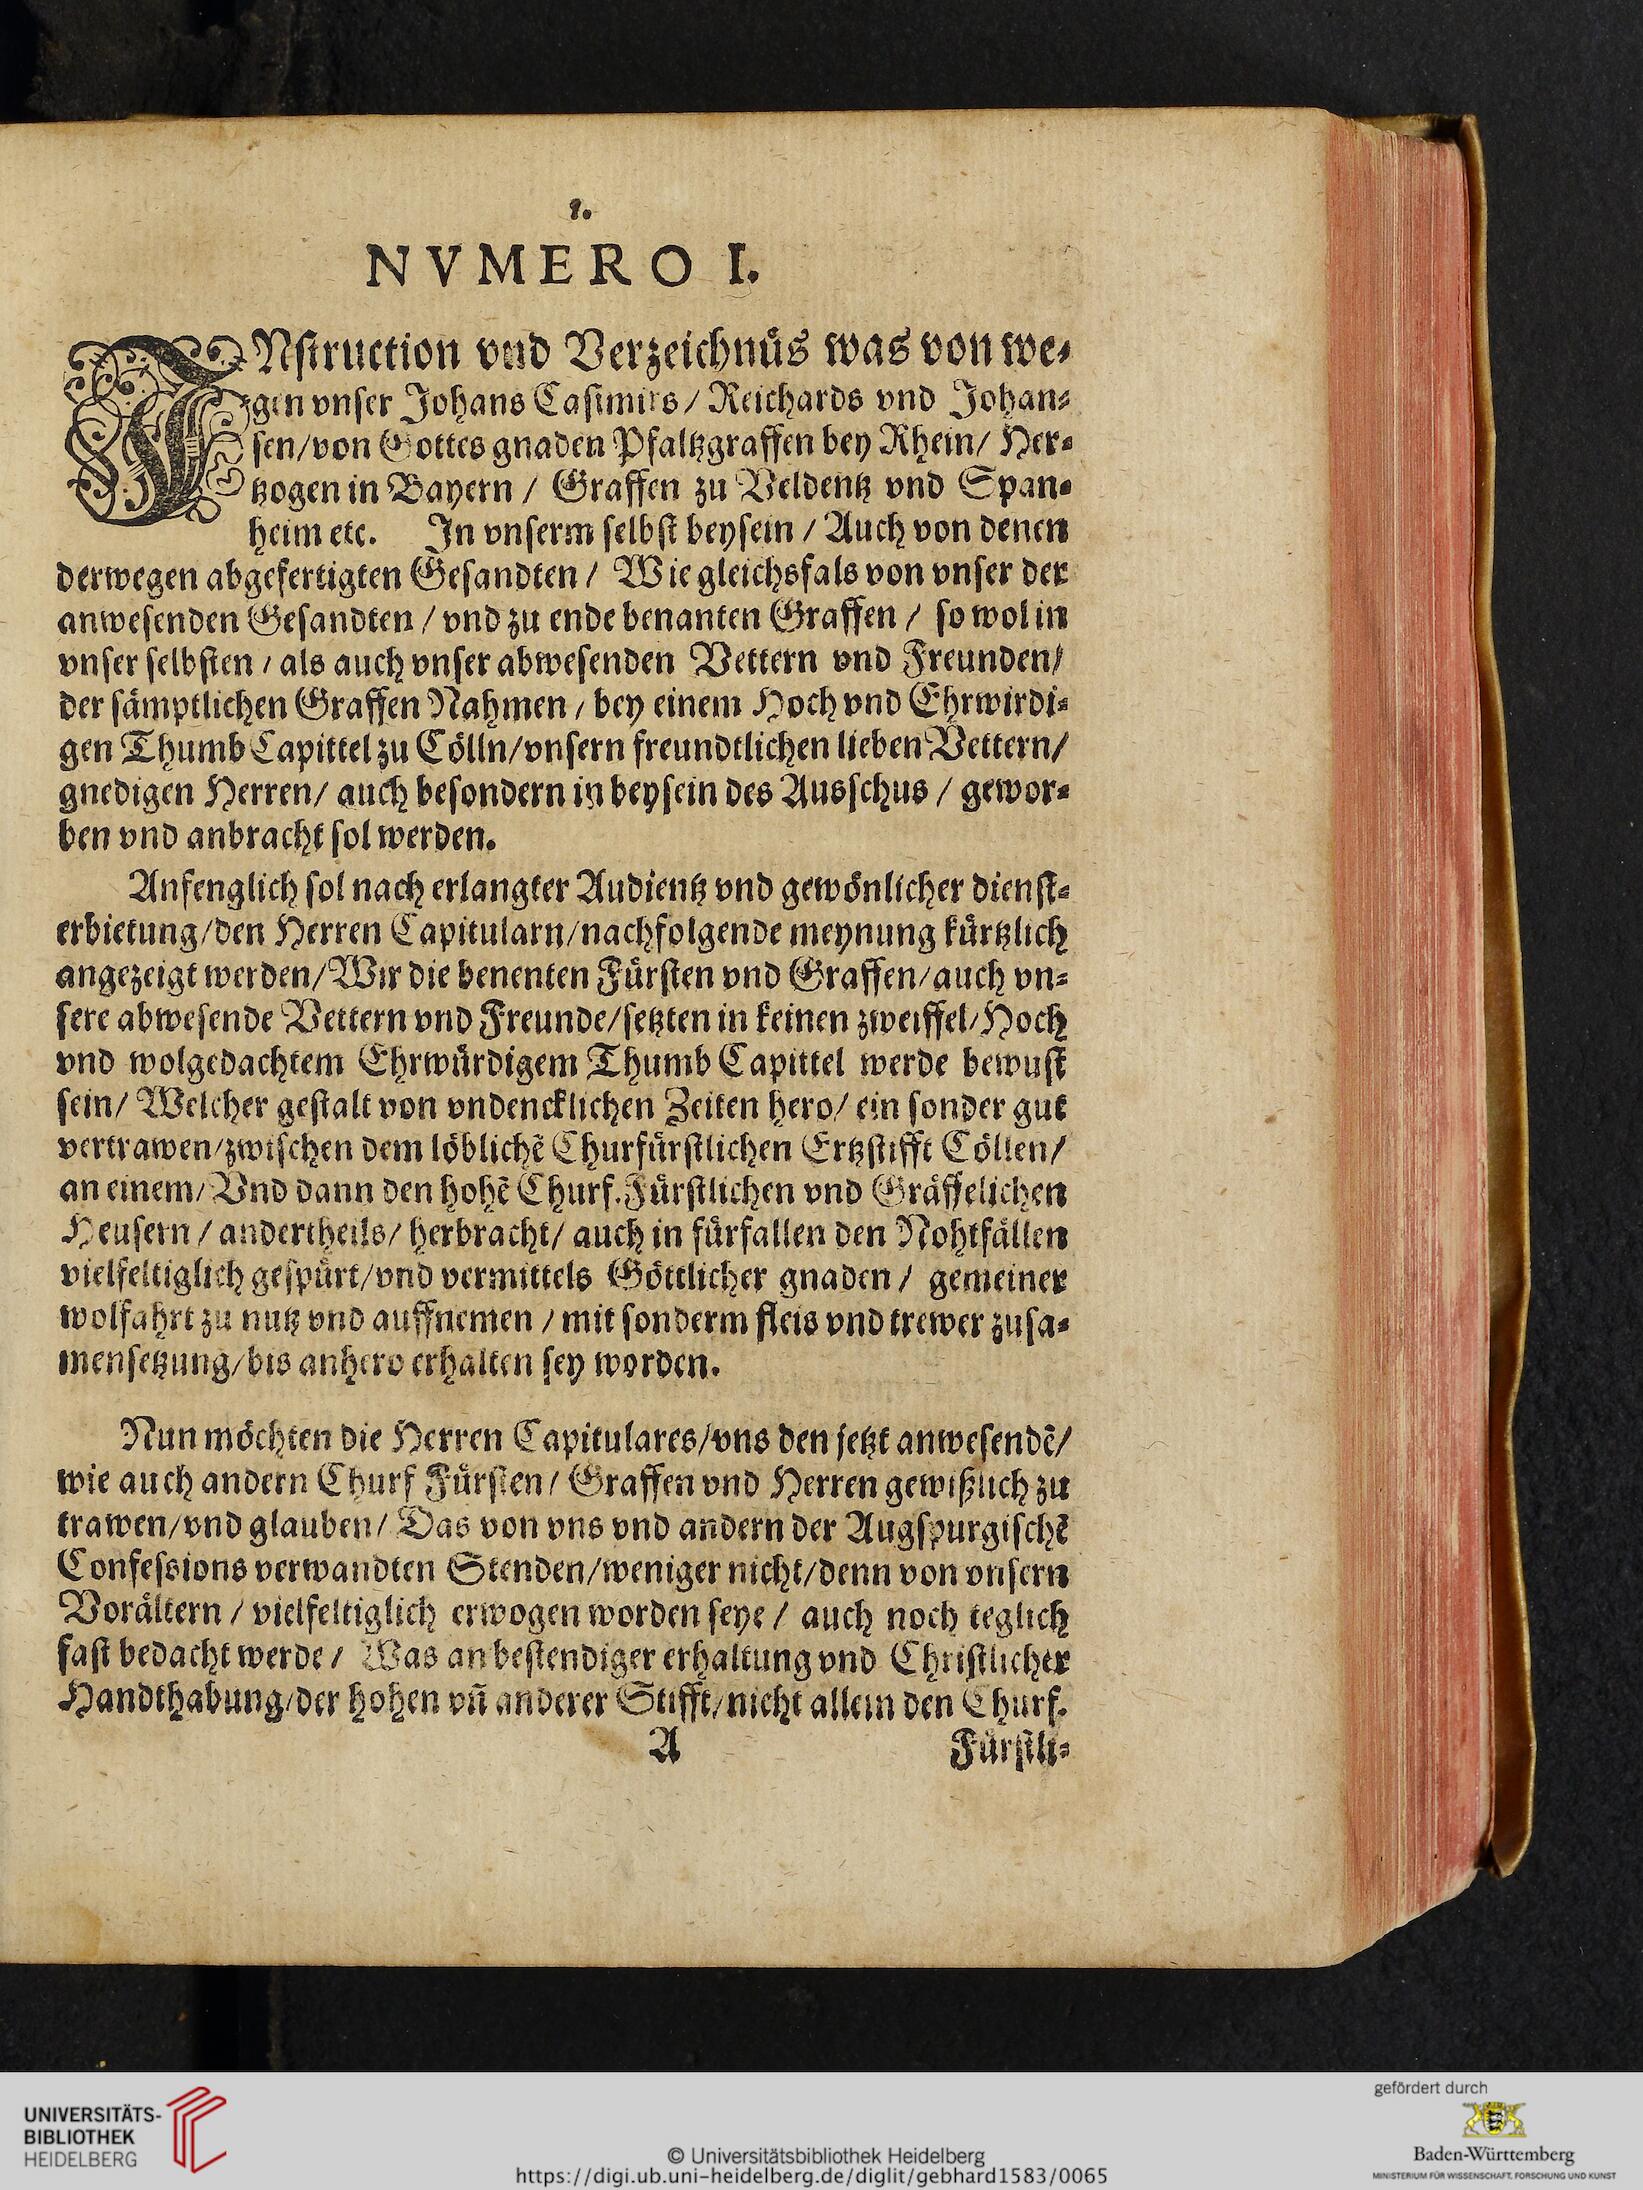 1.
NVMERO I.
INstruction vnd Verzeichnüs was von we-
gen vnser Johans Casimirs / Reichards vnd Johan-
sen/von Gottes gnaden Pfaltzgraffen bey Rhein/ Her-
tzogen in Bayern / Graffen zu Veldentz vnd Span-
heim etc. In vnserm selbst beysein / Auch von denen
derwegen abgefertigten Gesandten / Wie gleichsfals von vnser der
anwesenden Gesandten / vnd zu ende benanten Graffen / so wol in
vnser selbsten / als auch vnser abwesenden Vettern vnd Freunden/
der sämptlichen Graffen Nahmen / bey einem Hoch vnd Ehrwirdi-
gen Thumb Capittel zu Cölln/vnsern freundtlichen lieben Vettern/
gnedigen Herren/ auch besondern in beysein des Ausschus / gewor-
ben vnd anbracht sol werden.
Anfenglich sol nach erlangter Audientz vnd gewönlicher dienst-
erbietung/den Herren Capitularn/nachfolgende meynung kürtzlich
angezeigt werden/Wir die benenten Fürsten vnd Graffen/auch vn-
sere abwesende Vettern vnd Freunde/setzten in keinen zweiffel/Hoch
vnd wolgedachtem Ehrwürdigem Thumb Capittel werde bewust
sein/ Welcher gestalt von vndencklichen Zeiten hero/ ein sonder gut
vertrawen/zwischen dem löblichẽ Churfürstlichen Ertzstifft Cöllen/
an einem/Vnd dann den hohẽ Churf.Fürstlichen vnd Gräffelichen
Heusern / andertheils/ herbracht/ auch in fürfallen den Nohtfällen
vielfeltiglich gespürt/vnd vermittels Göttlicher gnaden / gemeiner
wolfahrt zu nutz vnd auffnemen / mit sonderm fleis vnd trewer zusa-
mensetzung/bis anhero erhalten sey worden.
Nun möchten die Herren Capitulares/vns den jetzt anwesendẽ/
wie auch andern Churf Fürsten/ Graffen vnd Herren gewißlich zu
trawen/vnd glauben/ Das von vns vnd andern der Augspurgischẽ
Confessions verwandten Stenden/weniger nicht/denn von vnsern
Vorältern / vielfeltiglich erwogen worden seye / auch noch teglich
fast bedacht werde / Was an bestendiger erhaltung vnd Christlicher
Handthabung/der hohen vñ anderer Stifft/nicht allein den Churf.
A Fürstli-
UNIVERSITÄTS-
BIBLIOTHEK
HEIDELBERG
© Universitätsbibliothek Heidelberg
https://digi.ub.uni-heidelberg.de/diglit/gebhard1583/0065
gefördert durch
Baden-Württemberg
MINISTERIUM FÜR WISSENSCHAFT, FORSCHUNG UND KUNST